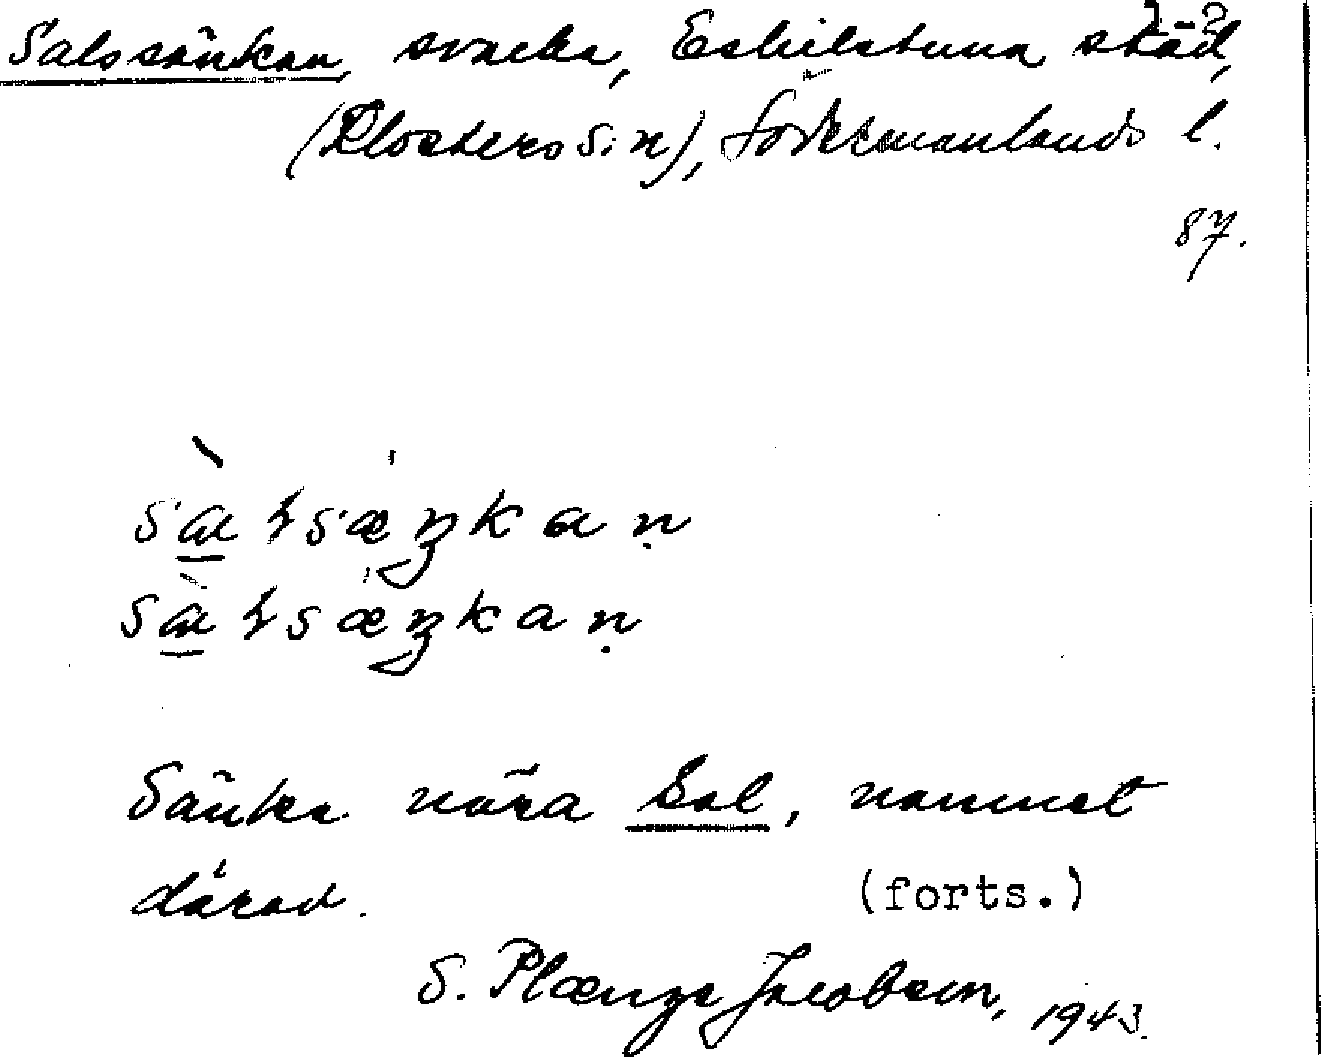 Salssänkan, svacka, Eskilstuna stad,
(Klosters s:n), Södermanlands l.
87.
Sänka nära Sal, namnet
därav. (forts.)
S. Plænge Jacobson, 1943.